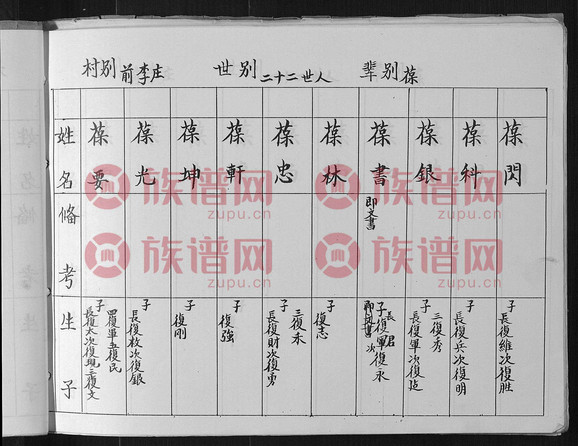 輩别葆
世别二十二世人
村别前李庄
葆閂
子長復維次復胜
葆科
子長復兵次復明
葆銀
子長復軍次復延
三復秀
葆書
即文書
葆林
子復志
葆忠
子長復財次復勇
三復禾
葆軒
子復強
葆坤
子復剛
葆光
子長復枚次復銀
葆要
子長復太次復現三復文
四復軍五復民
姓名
俻考
生子
族谱网
zupu.cn
族谱网
zupu.cn
族谱网
zupu.cn
族谱网
zupu.cn